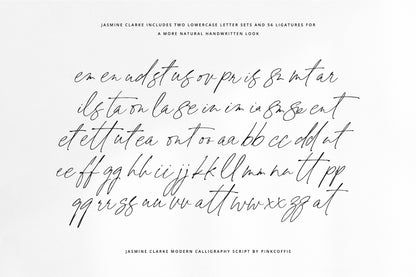 JASMINE CLARKE INCLUDES TWO LOWERCASE LETTER SETS AND 56 LIGATURES FOR
A MORE NATURAL HANDWRITTEN LOOK
em en ud st us ov pr is sn mt ar
ils ta on la se in im ia sm sp ent
et ett ut ea ont oo aa bb cc dd nt
ee ff gg hh ii jj kk ll mm nn tt pp
qq rr ss uu vv att ww xx zz at
JASMINE CLARKE MODERN CALLIGRAPHY SCRIPT BY PINKCOFFIE